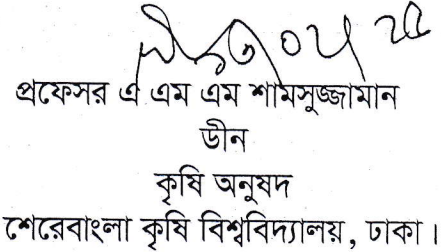 প্রফেসর এ এম এম শামসুজ্জামান
ডীন
কৃষি অনুষদ
শেরেবাংলা কৃষি বিশ্ববিদ্যালয়, ঢাকা।